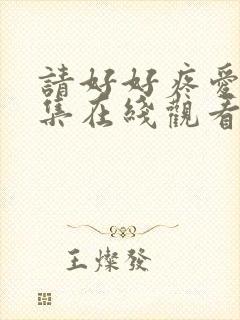 請好好疼愛
集在綫觀看
王燦發